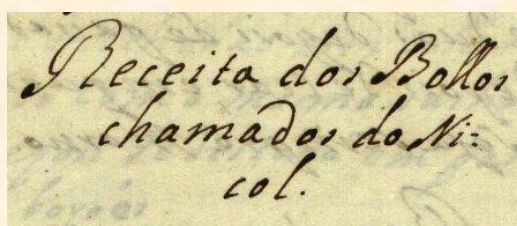 Receita dos Bollos
chamados do Ni=
col.